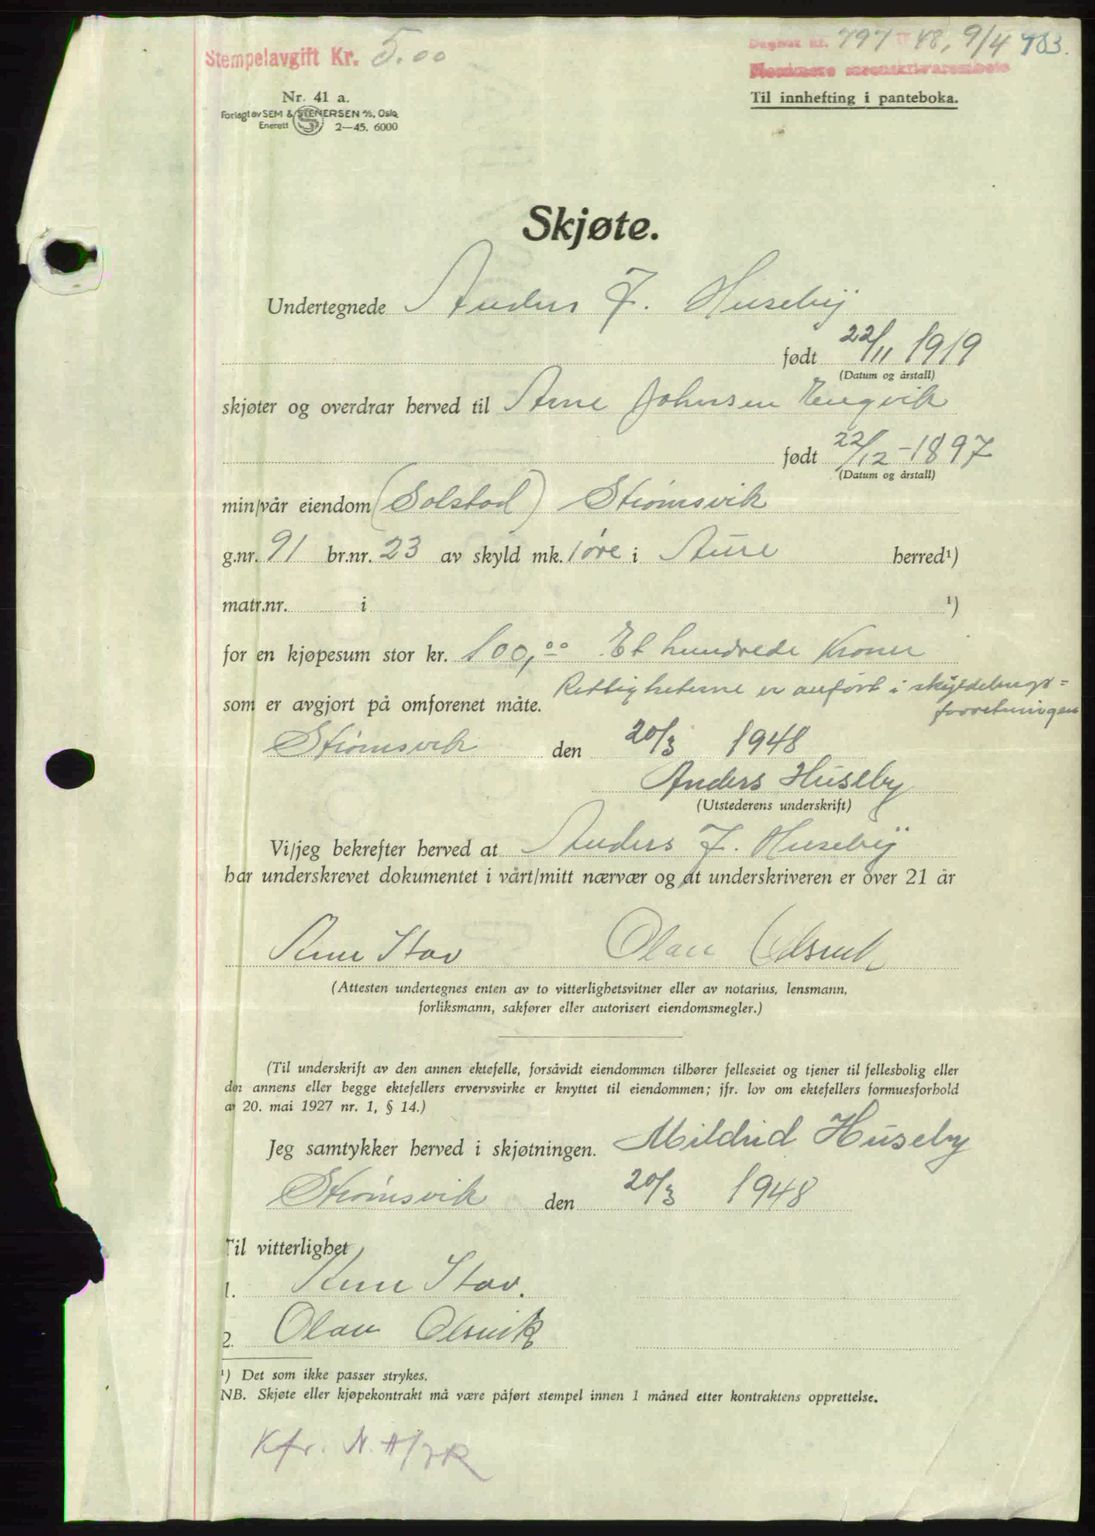 Stempelavgift Kr. 5.00
Dagbok nr. 797 48, 9/4 783.
Nordmøre sorenskriverembete
Nr. 41 a.
Forlagt av SEM & STENERSEN A/S, Oslo
Enerett S 2—45. 6000
Til innhefting i panteboka.
Skjøte.
Undertegnede Anders J. Huseby
født 22/11 1919
(Datum og årstall)
skjøter og overdrar herved til Arne Johnsen Engvik
født 22/12-1897
(Datum og årstall)
min/vår eiendom (Solstad) Strømsvik
g.nr. 91 br.nr. 23 av skyld mk. 1 øre i Aure herred¹)
matr.nr. i ¹)
for en kjøpesum stor kr. 100,00 Et hundrede Kroner
som er avgjort på omforenet måte. Rettigheterne er anført i skyldelings=
forretningen
Strømsvik den 20/3 1948
Anders Huseby
(Utstederens underskrift)
Vi/jeg bekrefter herved at Anders J. Huseby
har underskrevet dokumentet i vårt/mitt nærvær og at underskriveren er over 21 år
Stav Olav
(Attesten undertegnes enten av to vitterlighetsvitner eller av notarius, lensmann,
forliksmann, sakfører eller autorisert eiendomsmegler.)
(Til underskrift av den annen ektefelle, forsåvidt eiendommen tilhører felleseiet og tjener til fellesbolig eller
den annens eller begge ektefellers ervervsvirke er knyttet til eiendommen; jfr. lov om ektefellers formuesforhold
av 20. mai 1927 nr. 1, § 14.)
Jeg samtykker herved i skjøtningen. Mildrid Huseby
Strømsvik den 20/3 1948
Til vitterlighet
1. Stav.
2. Olav
¹) Det som ikke passer strykes.
NB. Skjøte eller kjøpekontrakt må være påført stempel innen 1 måned etter kontraktens opprettelse.
Kfr.